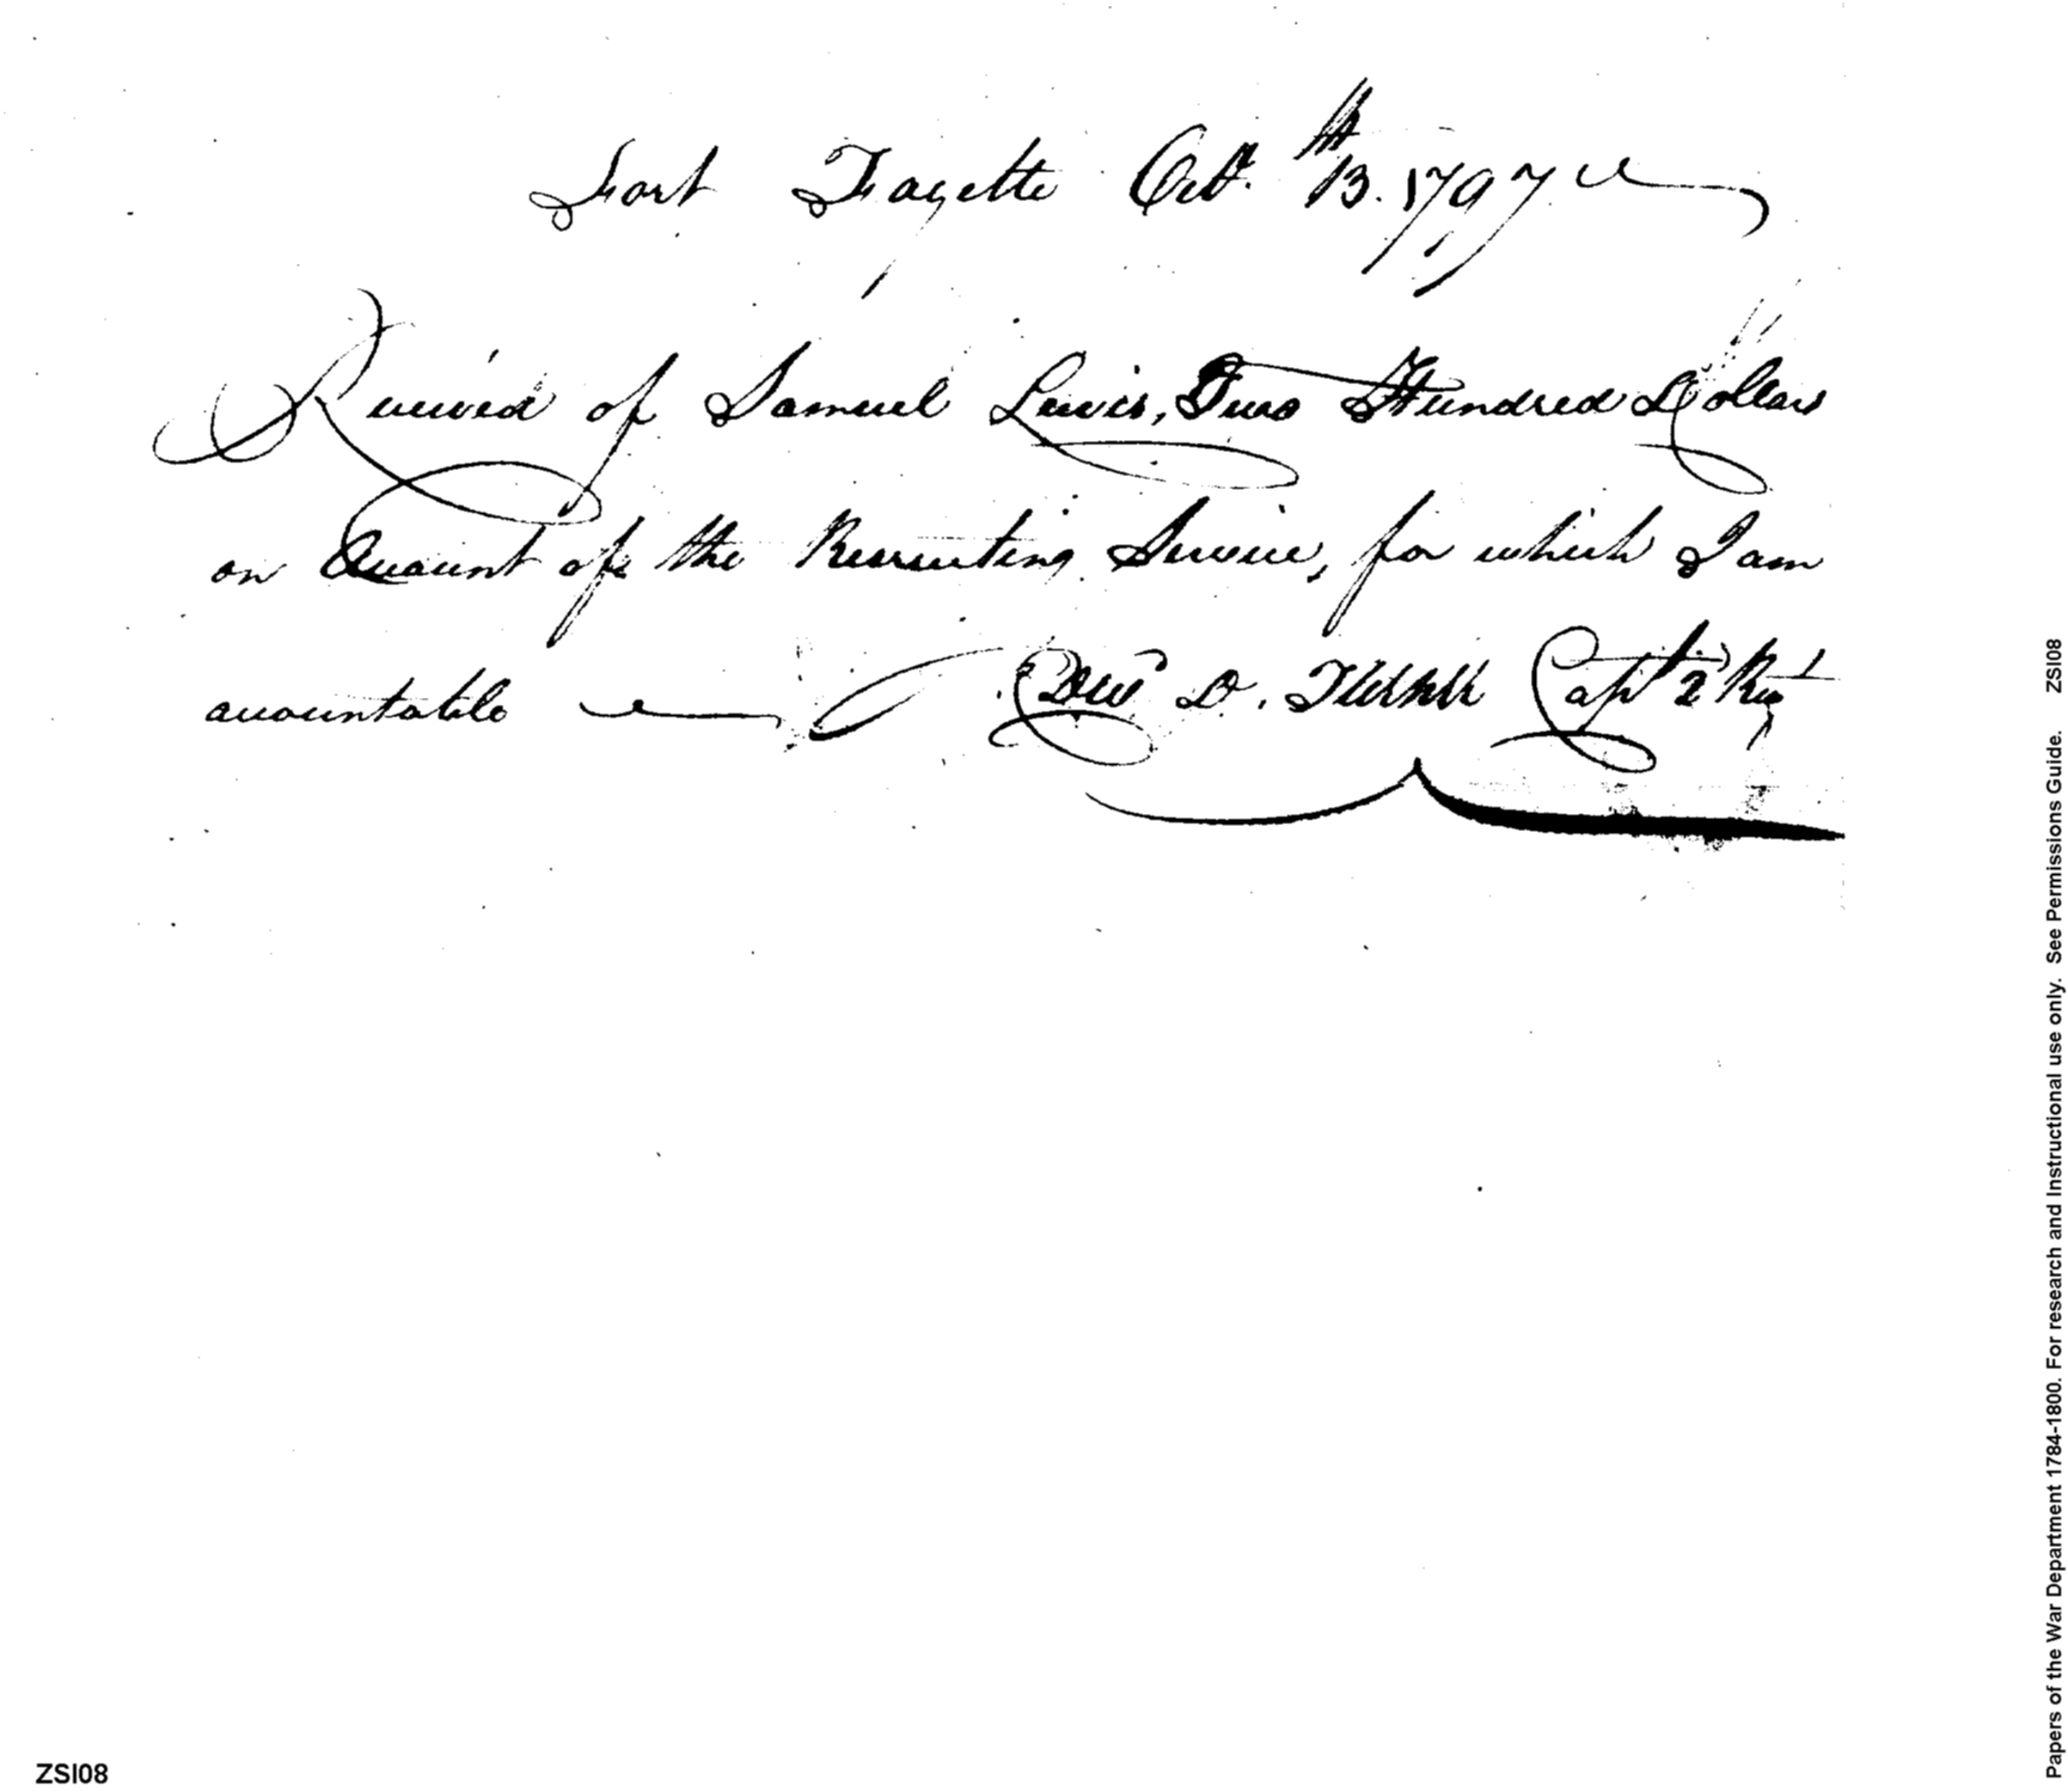 Fort Fayette Octr. 13th. 1797
Received of Samuel Lewis, Two Hundred Dollars
on Account of the Recruiting Service, for which I am
accountable Edwd D. Turner Capt 2 Regt
ZSI08
Papers of the War Department 1784-1800. For research and Instructional use only. See Permissions Guide. ZSI08